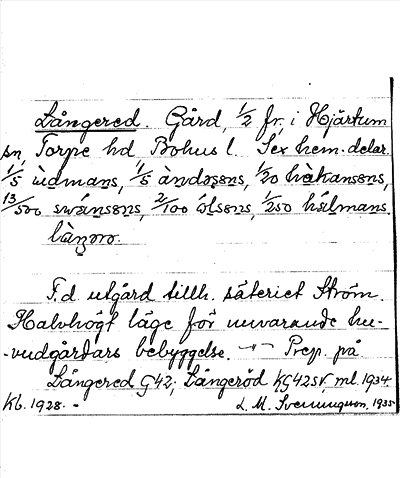 Långered. Gård, 1/2 fr, i Hjärtum
sn, Torpe hd Bohus l. Sex hem. delar.
1/5 ùdmans, 1/5 àndəsəns, 1/20 hàkansəns,
13/500 swánsəns, 2/100 ólsəns, 1/250 hálmans.
làŋərə.
F.d. utgård tillh. säteriet Ström.
Halvhögt läge för nuvarande hu-
-vudgårdars bebyggelse. Prep. på
Långered G42; Långeröd KG42sv, ml. 1934
Kb. 1928. - L. M. Svenungsson, 1935